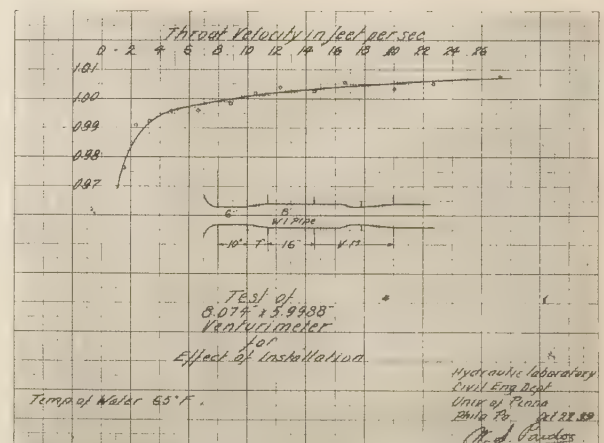 Throat Velocity in feet per sec
0 2 4 6 8 10 12 14 16 18 20 22 24 26
1.01
1.00
0.99
0.98
0.97
6" 8"
W.I. Pipe
10" 7" 16"
Test of
8.074" x 5.9988"
Venturimeter
for
Effect of Installation
Hydraulic laboratory
Civil Eng Dept
Univ of Penna
Phila Pa.
Temp of Water 65°F.